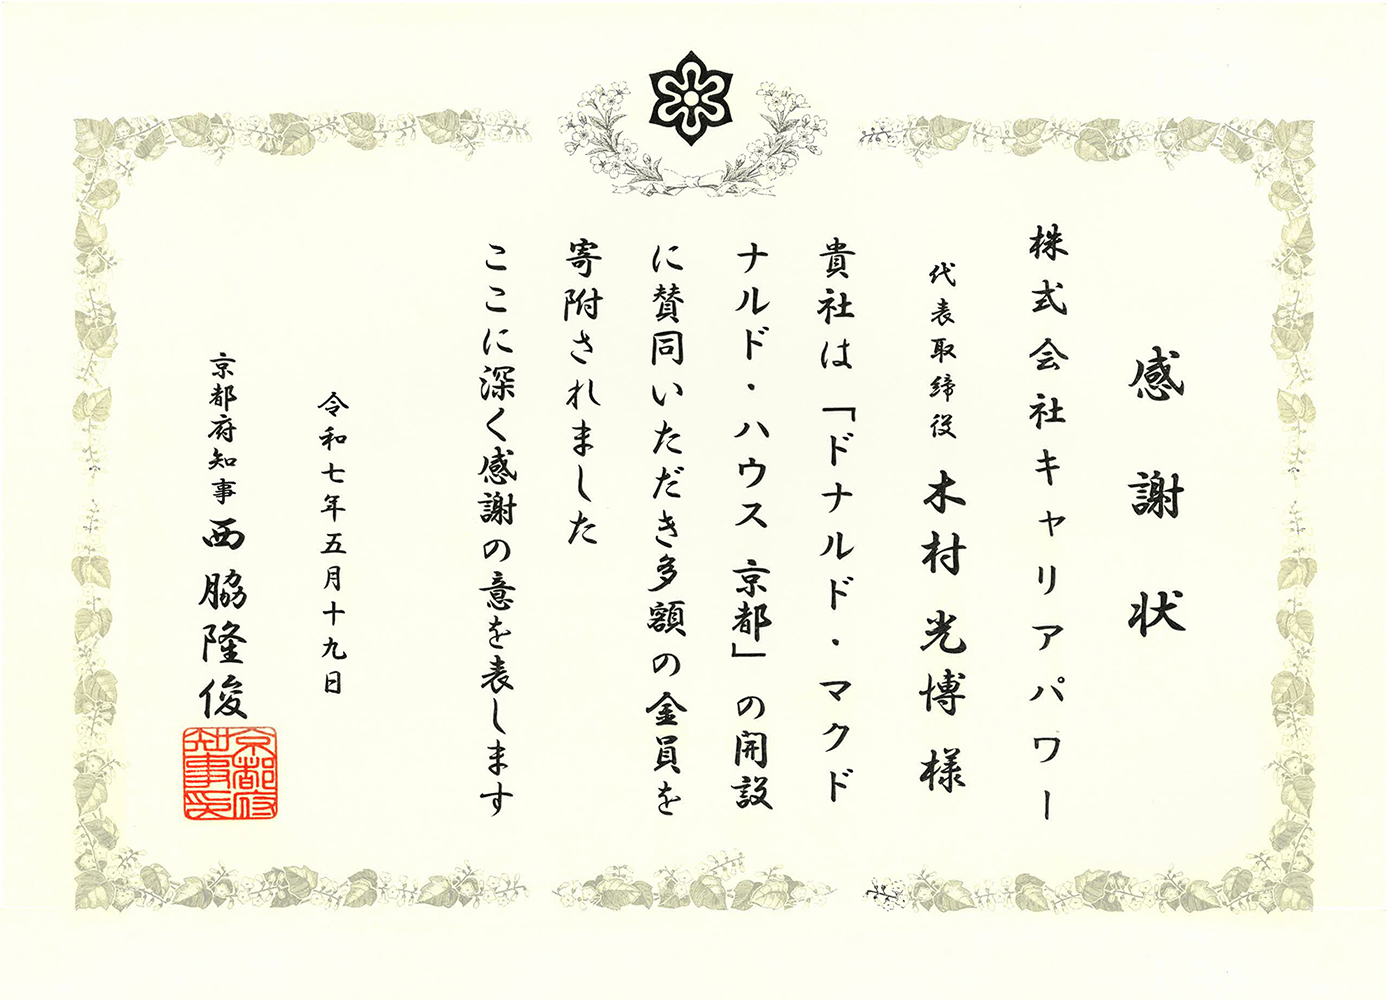 感謝状
株式会社キャリアパワー
代表取締役 木村光博様
貴社は「ドナルド・マクド
ナルド・ハウス 京都」の開設
に賛同いただき多額の金員を
寄附されました
ここに深く感謝の意を表します
令和七年五月十九日
京都府知事 西脇隆俊
京都府
知事印